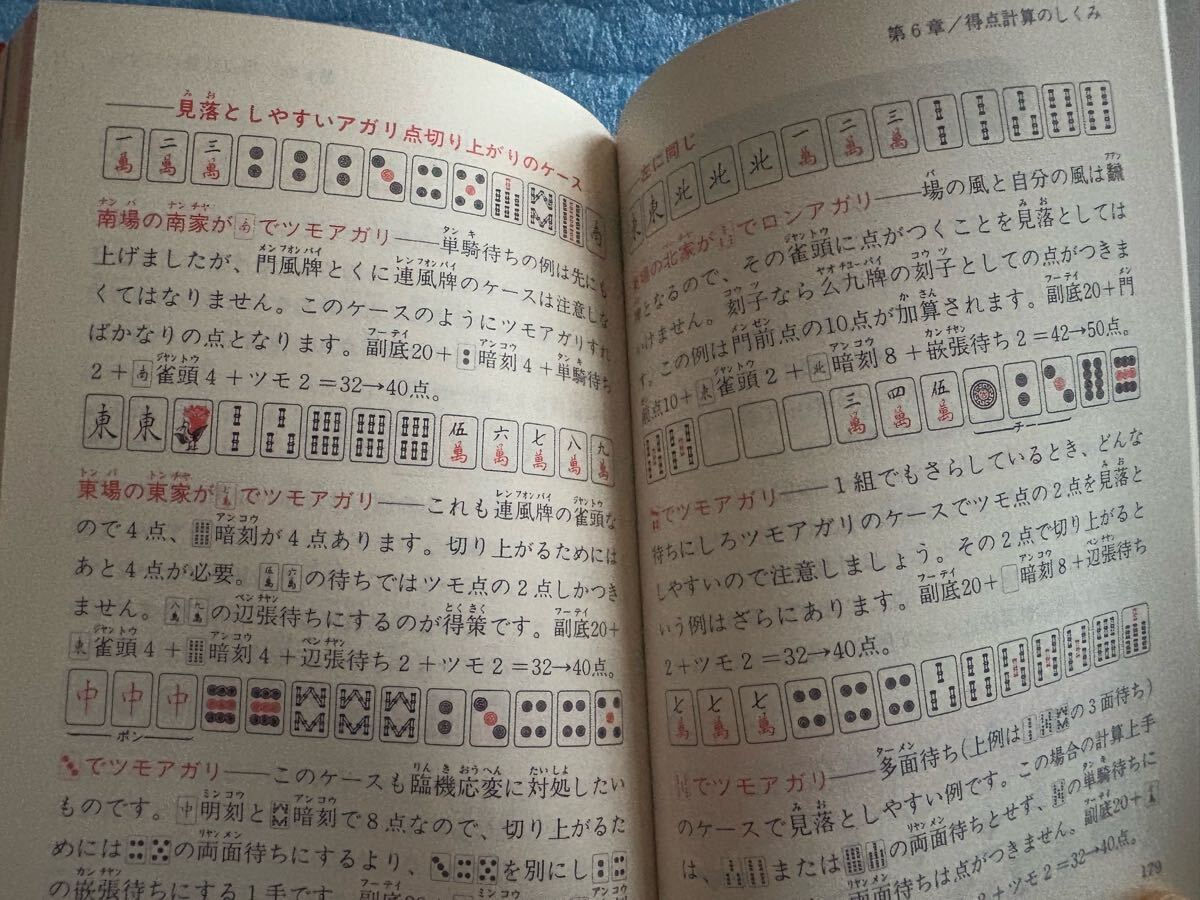 見落としやすいアガリ点切り上がりのケース
一萬 二萬 三萬 南
南場の南家が南でツモアガリ――単騎待ちの例は先にも
上げましたが、門風牌とくに連風牌のケースは注意しな
くてはなりません。このケースのようにツモアガリすれ
ばかなりの点となります。副底20+暗刻4+単騎待ち
2+南雀頭4+ツモ2=32→40点。
東 東 伍萬 六萬 七萬 八萬 九萬
東場の東家が七萬でツモアガリ――これも連風牌の雀頭な
ので4点、暗刻が4点あります。切り上がるためには
あと4点が必要。伍萬六萬の待ちではツモ点の2点しかつき
ません。八萬九萬の辺張待ちにするのが得策です。副底20+
東雀頭4+暗刻4+辺張待ち2+ツモ2=32→40点。
中 中 中
ポン
でツモアガリ――このケースも臨機応変に対処したい
ものです。中明刻と暗刻で8点なので、切り上がるた
めにはの両面待ちにするより、を別にし
の嵌張待ちにする1手です。
第6章/得点計算のしくみ
左に同じ
東 東 北 北 北 一萬 二萬 三萬
の北家がでロンアガリ――場の風と自分の風は飜
牌となるので、その雀頭に点がつくことを見落としては
いけません。刻子なら么九牌の刻子としての点がつきま
す。この例は門前点の10点が加算されます。副底20+門
前点10+東雀頭2+北暗刻8+嵌張待ち2=42→50点。
三萬 四萬 伍萬
チー
でツモアガリ――1組でもさらしているとき、どんな
待ちにしろツモアガリのケースでツモ点の2点を見落と
しやすいので注意しましょう。その2点で切り上がると
いう例はざらにあります。副底20+暗刻8+辺張待ち
2+ツモ2=32→40点。
七萬 七萬 七萬
でツモアガリ――多面待ち(上例はの3面待ち)
のケースで見落としやすい例です。この場合の計算上手
は、またはの両面待ちとせず、の単騎待ちに
両面待ちは点がつきません。副底20+
+ツモ2=32→40点。
179